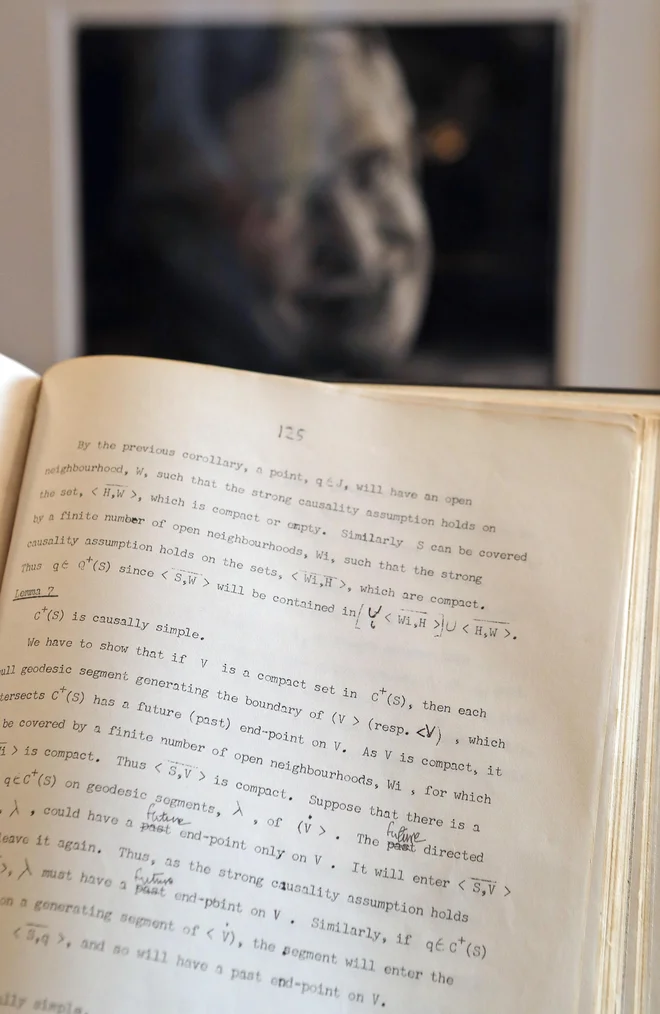 125
By the previous corollary, a point, q ∈ J, will have an open
neighbourhood, W, such that the strong causality assumption holds on
the set, < H̅,̅W̅ >, which is compact or empty. Similarly S can be covered
by a finite number of open neighbourhoods, Wi, such that the strong
causality assumption holds on the sets, < W̅i̅,̅H̅ >, which are compact.
Thus q∈ Q⁺(S) since < S̅,̅W̅ > will be contained in [∪ᵢ < W̅i̅,̅H̅ >]∪ < H̅,̅W̅ >.
Lemma 7
C⁺(S) is causally simple.
We have to show that if V is a compact set in C⁺(S), then each
ull geodesic segment generating the boundary of (V > (resp. <V) , which
tersects C⁺(S) has a future (past) end-point on V. As V is compact, it
be covered by a finite number of open neighbourhoods, Wi , for which
i > is compact. Thus < S̅,̅V̅ > is compact. Suppose that there is a
q∈C⁺(S) on geodesic segments, λ , of (V̇ > . The past future directed
, λ , could have a past future end-point only on V . It will enter < S̅,̅V̅ >
leave it again. Thus, as the strong causality assumption holds
>, λ must have a past future end-point on V . Similarly, if q∈C⁺(S)
on a generating segment of < V̇), the segment will enter the
< S̅,̅q̅ >, and so will have a past end-point on V.
lly simple.